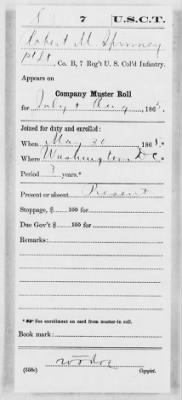 S | 7 | U.S.C.T.
Robert M. Spinney
Pvt, Co. B, 7 Reg't U. S. Col'd Infantry.
Appears on
Company Muster Roll
for July & Aug, 186
Joined for duty and enrolled:
When May 30, 186
Where Washington D.C.
Period 3 years.*
Present or absent Present
Stoppage, $ 100 for
Due Gov't $ 100 for
Remarks:
*See enrollment on card from muster-in roll.
Book mark:
(858c) Copyist.